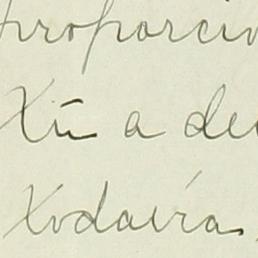 proporcio
Xũ a de
Xodaíra